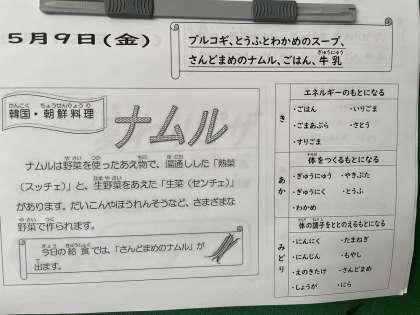 5月9日(金)
プルコギ、とうふとわかめのスープ、
さんどまめのナムル、ごはん、牛乳
ぎゅうにゅう
かんこく ちょうせんりょうり
韓国・朝鮮料理
ナムル
ナムルは野菜を使ったあえ物で、湯通しした「熟菜
(スッチェ)」と、生野菜をあえた「生菜(センチェ)」
があります。だいこんやほうれんそうなど、さまざまな
野菜で作られます。
今日の給食では、「さんどまめのナムル」が
出ます。
エネルギーのもとになる
き
・ごはん ・いりごま
・ごまあぶら ・さとう
・すりごま
体をつくるもとになる
あか
・ぎゅうにゅう ・やきぶた
・ぎゅうにく ・とうふ
・わかめ
体の調子をととのえるもとになる
みどり
・にんにく ・たまねぎ
・にんじん ・もやし
・えのきたけ ・さんどまめ
・しょうが ・にら